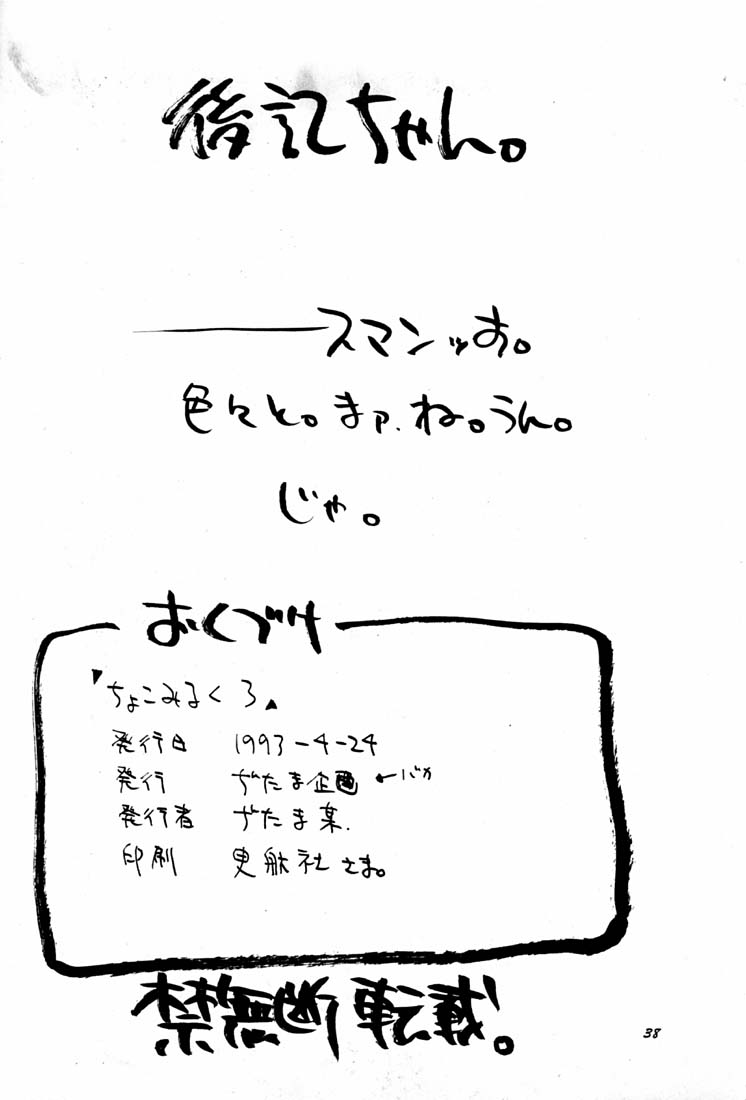 後記ちゃん。
――スマンッす。
色々と。まァ、ね。うん。
じゃ。
おくづけ
"ちょこみるく 3"
発行日 1993-4-24
発行 ぢたま企画 ←バカ
発行者 ぢたま某.
印刷 更航社さま。
禁無断転載。
38